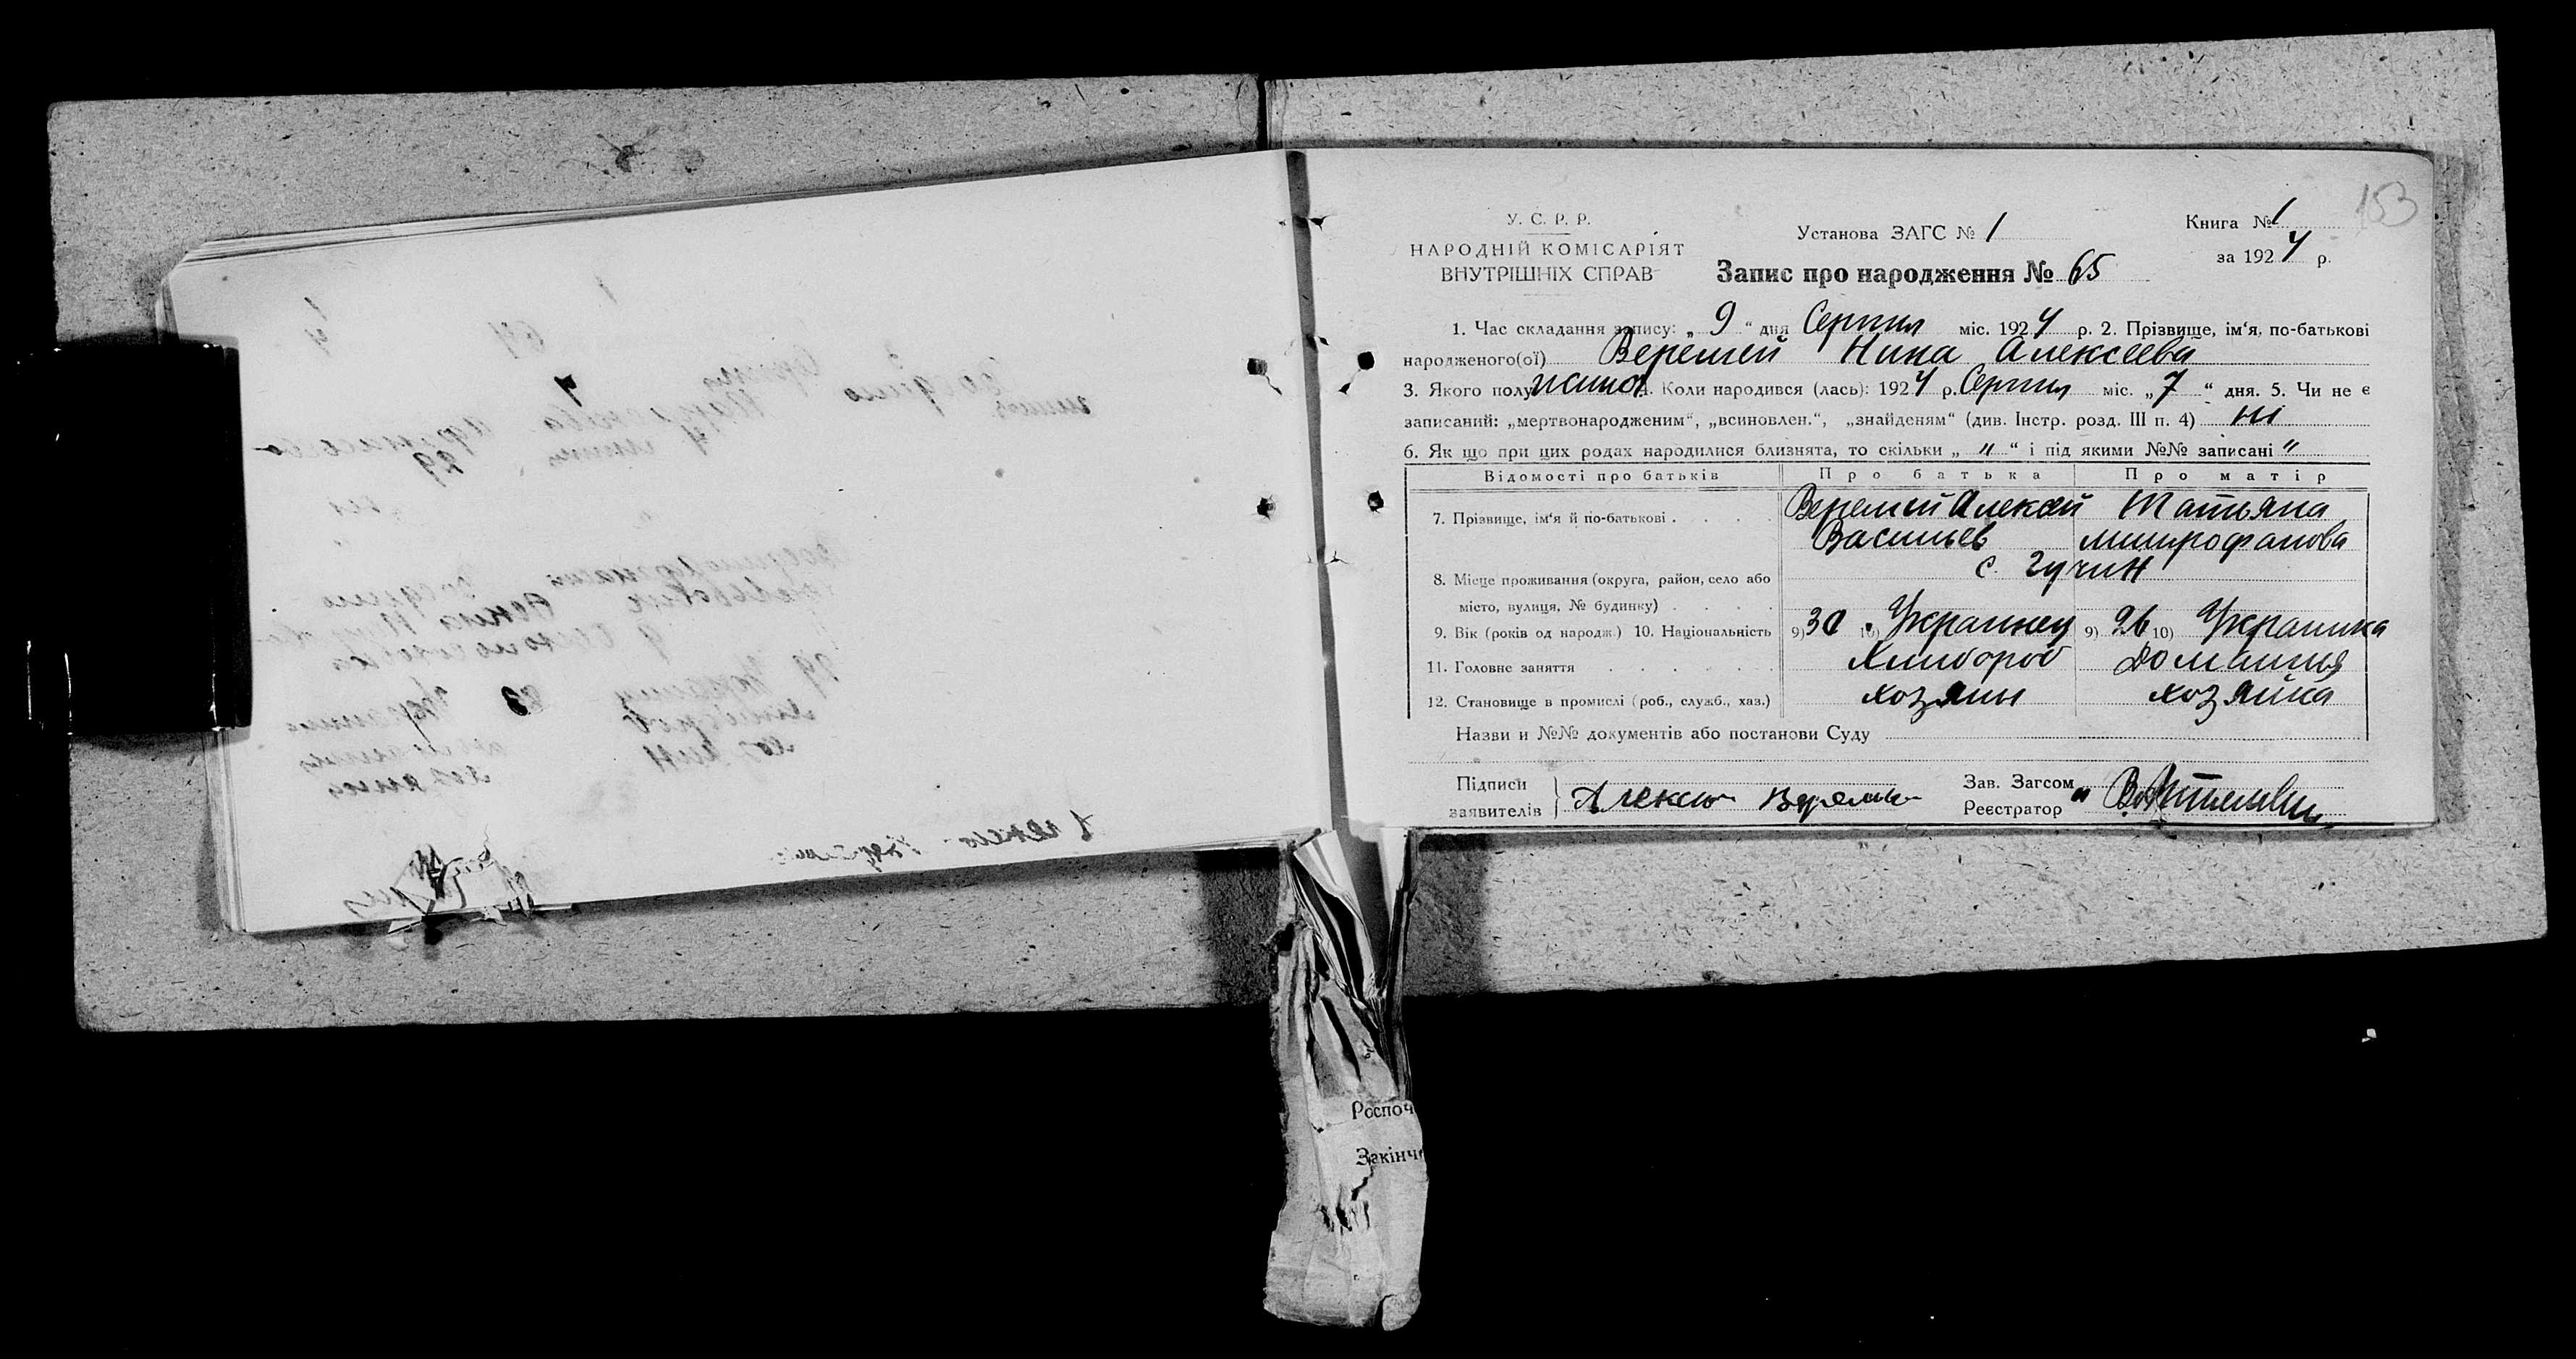 153
У. С. Р. Р.
НАРОДНІЙ КОМІСАРІЯТ
ВНУТРІШНІХ СПРАВ
Установа ЗАГС № 1
Книга № 1
за 1924 р.
Запис про народження № 65
1. Час складання запису: „ 9 “ дня Серпня міс. 1924 р. 2. Прізвище, ім‘я, по-батькові
народженого(ої) Веремей Нина Алексеева
3. Якого полу жиноч. 4. Коли народився (лась): 1924 р. Серпня міс. „ 7 “ дня. 5. Чи не є
записаний: „мертвонародженим“, „всиновлен.“, „знайденям“ (див. Інстр. розд. III п. 4) ні
6. Як що при цих родах народилися близнята, то скільки „ " “ і під якими №№ записані "
Відомості про батьків Про батька Про матір
7. Прізвище, ім‘я й по-батькові . . . . Веремей Алексей Татьяна
Васильев митрофанова
с. Гучин
8. Місце проживання (округа, район, село або
місто, вулиця, № будинку) . . . .
9. Вік (років од народж.) 10. Національність 9) 30 10) Украинец 9) 26 10) Украинка
11. Головне заняття . . . . . Хлибороб Домашня
12. Становище в промислі (роб., служб., хаз.) хозяин хозяйка
Назви и №№ документів або постанови Суду
Підписи
заявителів
Алексей Веремей
Зав. Загсом
Реєстратор
Роспоч
Закінче